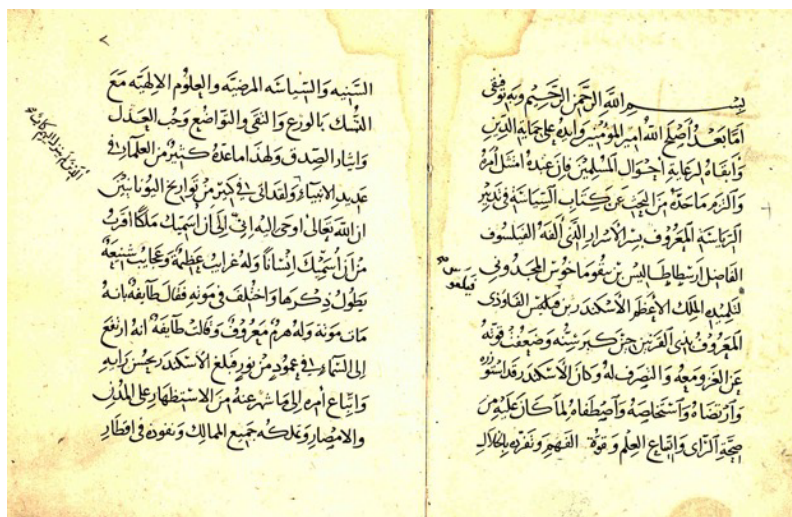 بسم الله الرحمن الرحيم وبه توفيقي
اما بعد اصلح الله امير المومنين وايده على حماية الدين
وابقاه لرعاية احوال المسلمين فان عبده امتثل امره
والتزم ما حده من البحث عن كتاب السياسة في تدبير
الرياسة المعروف بسر الاسرار الذي الفه الفيلسوف
الفاضل ارسطاطاليس بن نيقوماخوس المجدوني
لتلميذه الملك الاعظم الاسكندر بن فيلبس
المعروف بذي القرنين حين كبر سنه وضعفت قوته
عن الغزو معه والتصرف له وكان الاسكندر قد استوزره
وارتضاه واستخلصه واصطفاه لما كان عليه من
صحة الراى واتباع العلم وقوة الفهم وتفرده بالخلال
٧
السنيه والسياسه المرضيه والعلوم الالهيه مع
التنسك بالورع والتقى والتواضع وحب العدل
وايثار الصدق ولهذا ما عده كثير من العلما في
عديد الانبياء في كثير من تواريخ اليونانيين
ان الله تعالى اوحى اليه اني الى ان اسميك ملكا اقرب
من ان اسميك انسانا وله غرايب عظيمة وعجايب شنيعة
يطول ذكرها واختلف في موته فقال طايفة بانه
مات موتة وله هرم معروف وقالت طايفة انه ارتفع
الى السماء في عمود من نور فبلغ الاسكندر بحسن رايه
واتباع امره الى ما شهر عنه من الاستظهار على المدن
والامصار وملكه جميع الممالك ونفوذه في اقطار